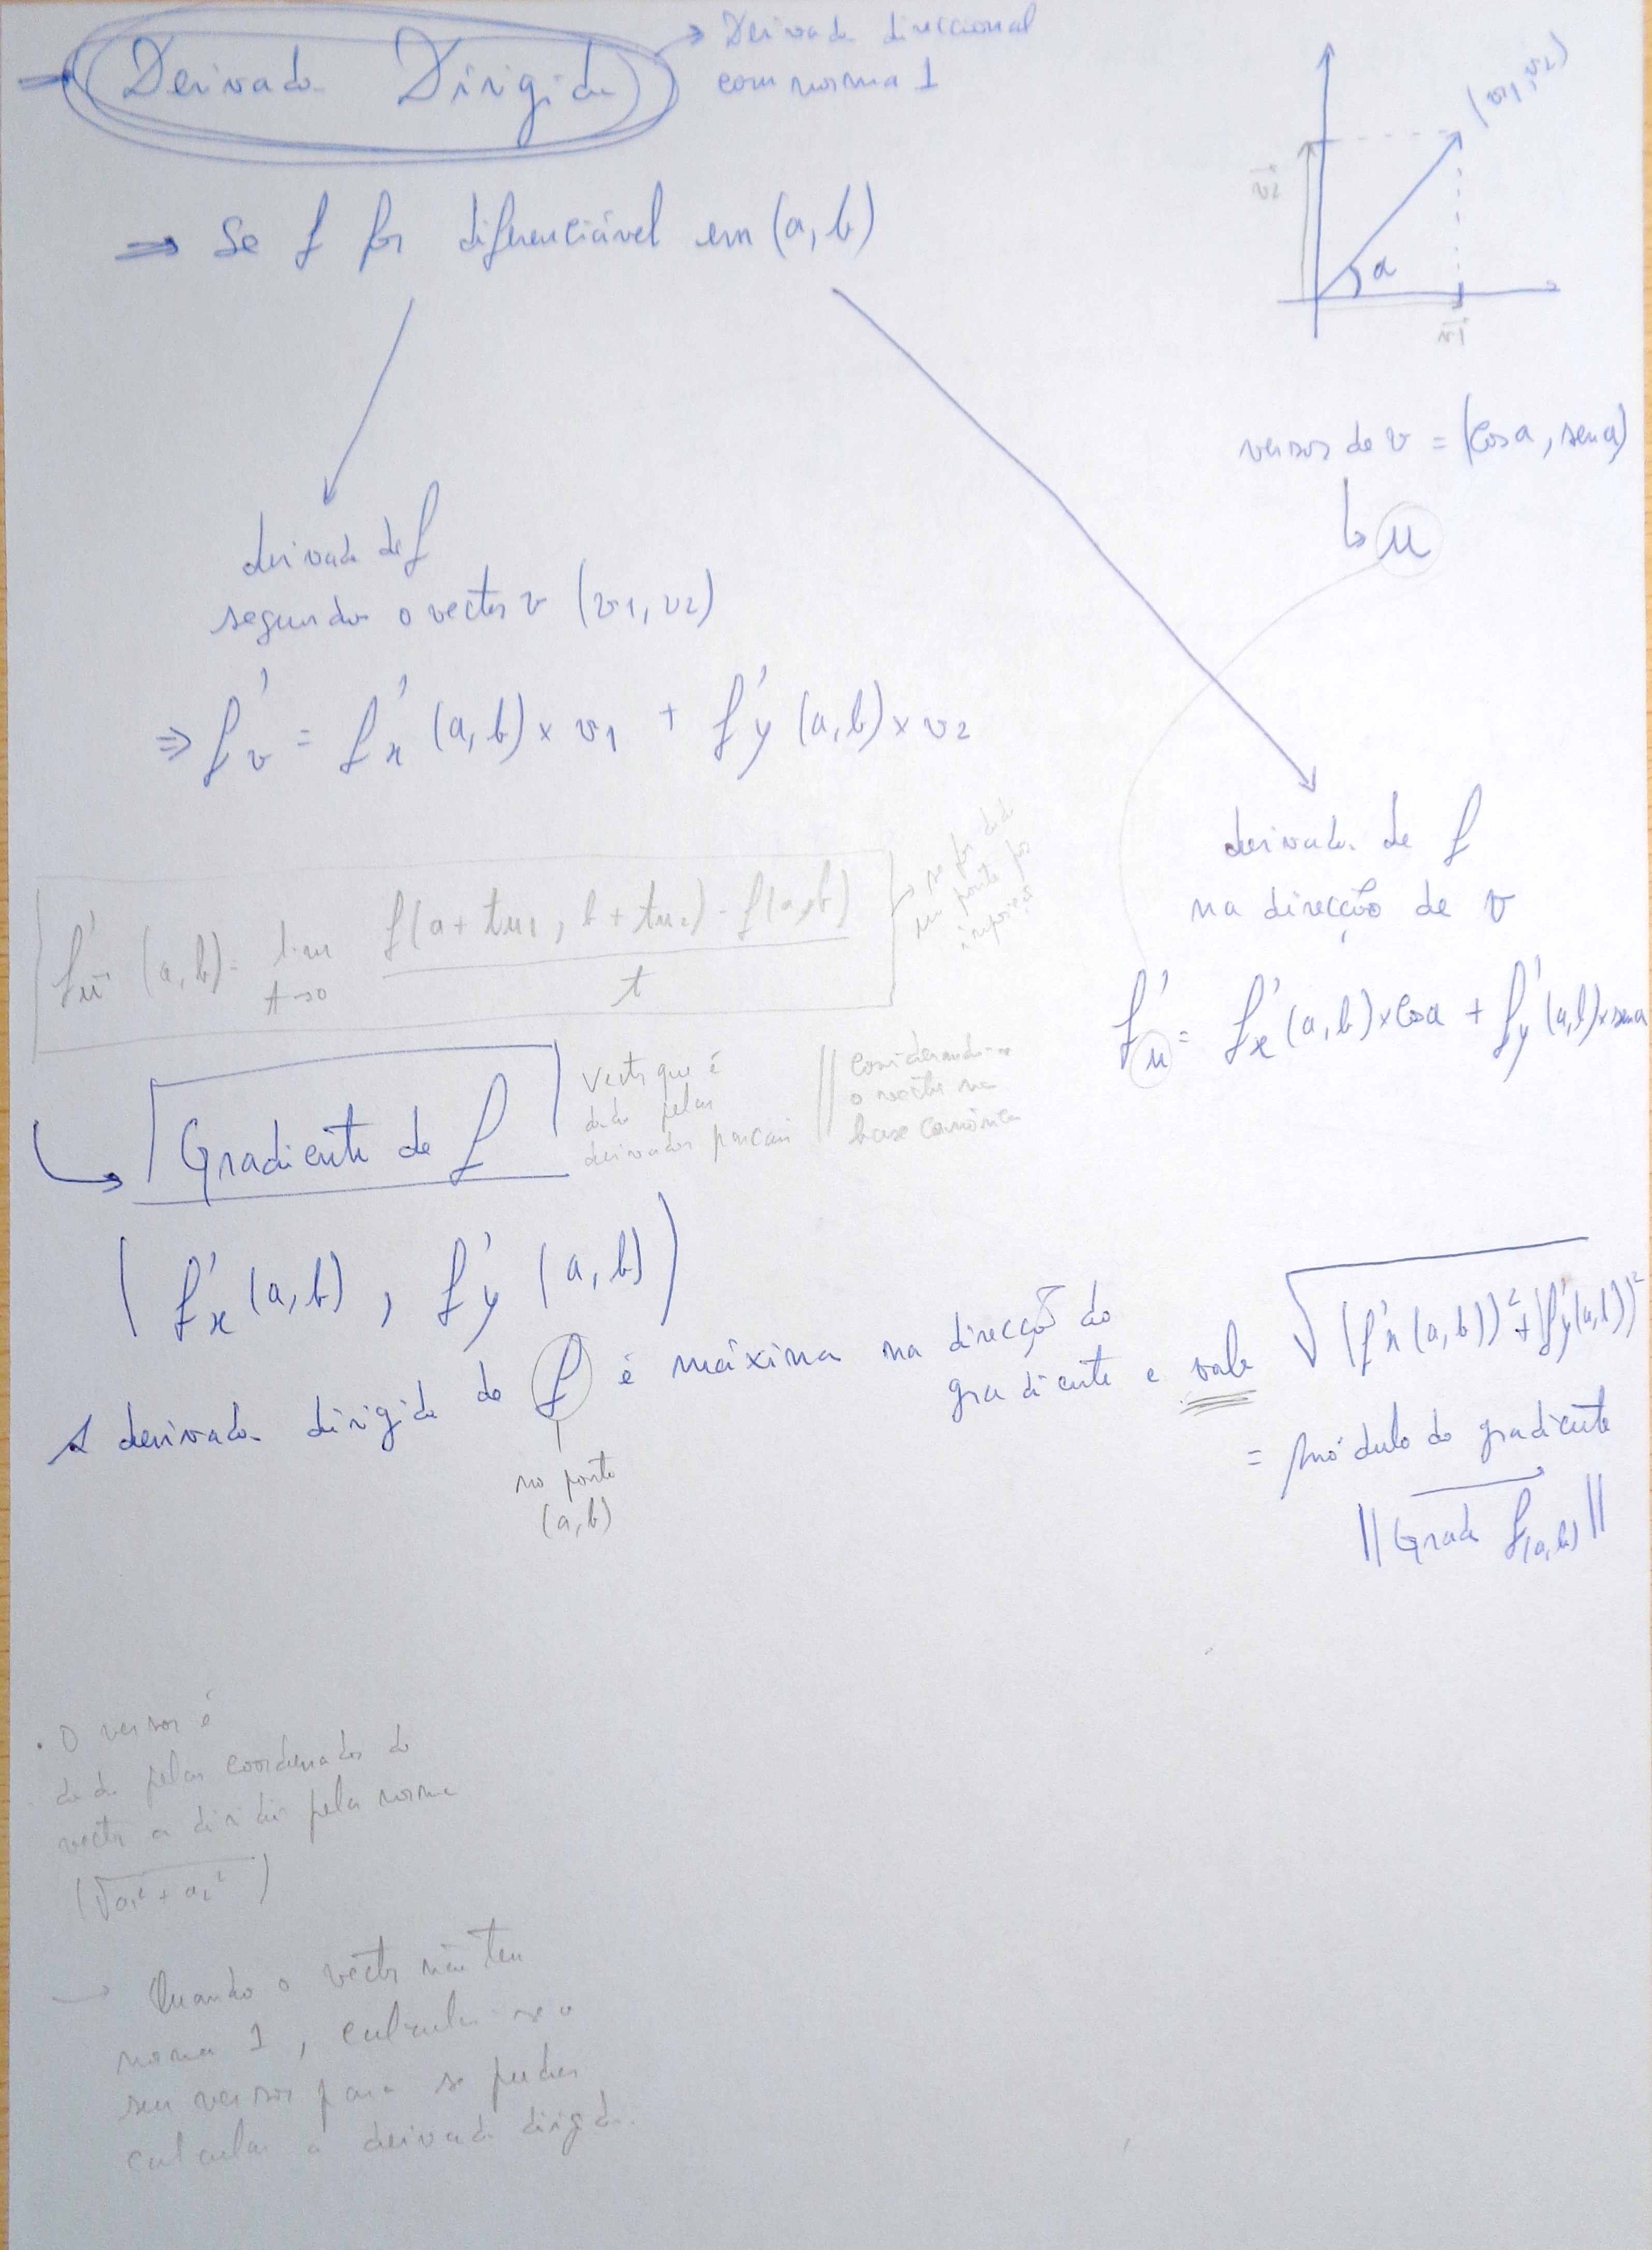 Derivada Dirigida
→ Derivada direccional
com norma 1
(v1, v2)
v2
a
v1
⇒ Se f for diferenciável em (a, b)
versor de v = (cos a, sen a)
↳ u
derivada de f
segundo o vector v (v1, v2)
⇒ f'v = f'x (a, b) × v1 + f'y (a, b) × v2
derivada de f
na direcção de v
f'u = f'x (a, b) × cos a + f'y (a, b) × sen a
f'u (a, b) = lim t→0 (f(a + tu1, b + tu2) - f(a, b)) / t
→ se for dado
um ponto por
Gradiente de f
Vector que é
dado pelas
derivadas parciais
|| Considerando-se
o vector na
base canónica
(f'x (a, b), f'y (a, b))
A derivada dirigida de f é máxima na direcção do
gradiente e vale √((f'x (a, b))² + (f'y (a, b))²)
no ponto
(a, b)
= módulo do gradiente
||Grad f(a, b)||
. O versor é
dado pelas coordenadas do
vector a dividir pela norma
(√a1² + a2²)
→ Quando o vector não tem
norma 1, calcula-se o
seu versor para se puder
calcular a derivada dirigida.